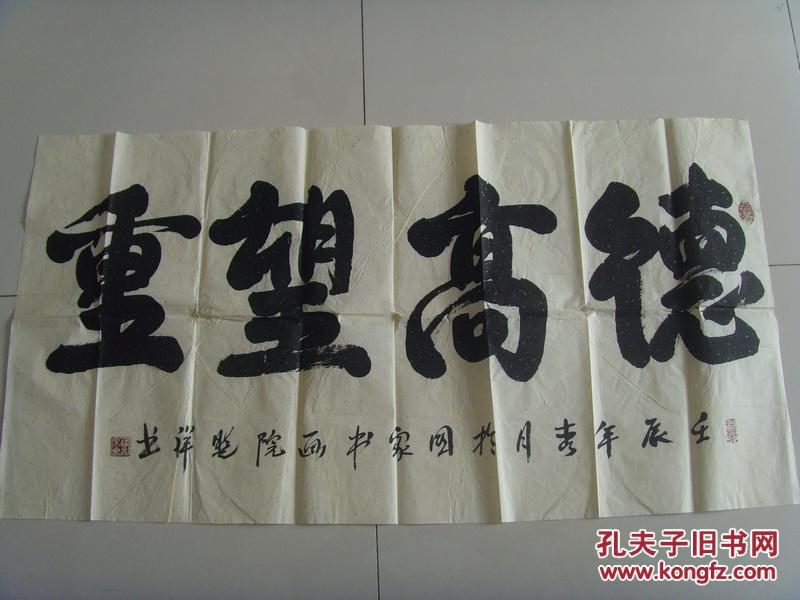 德高望重
壬辰年春月於国家书画院兆祥书
孔夫子旧书网
www.kongfz.com